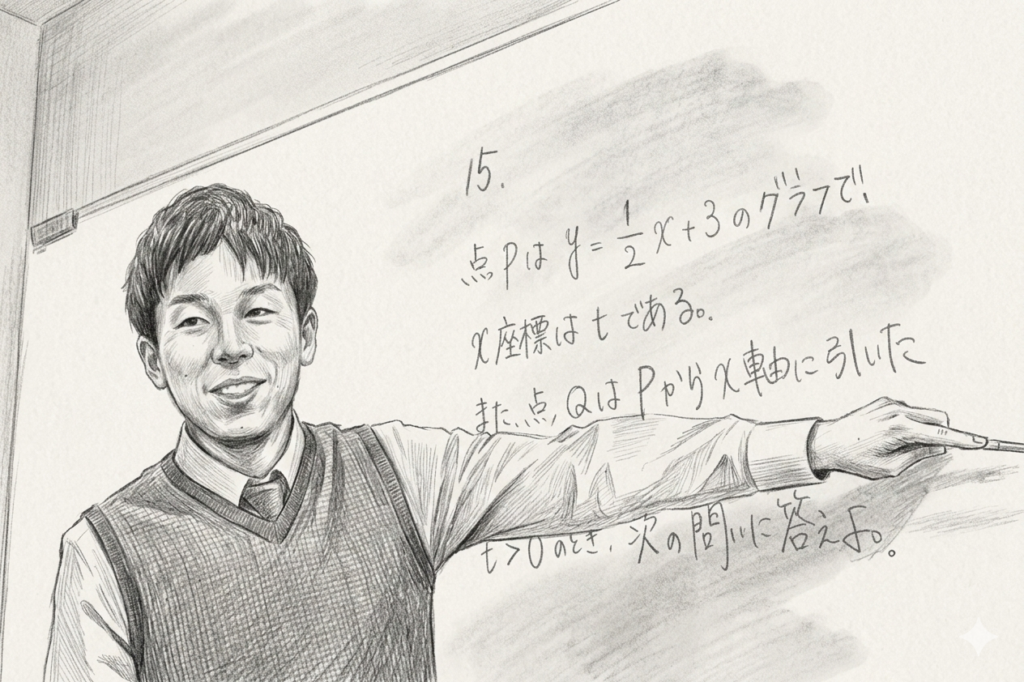 15.
点Pは y = 1/2 x + 3 のグラフで、
x座標は t である。
また、点Qは Pから x軸に引いた
t > 0 のとき、次の問いに答えよ。